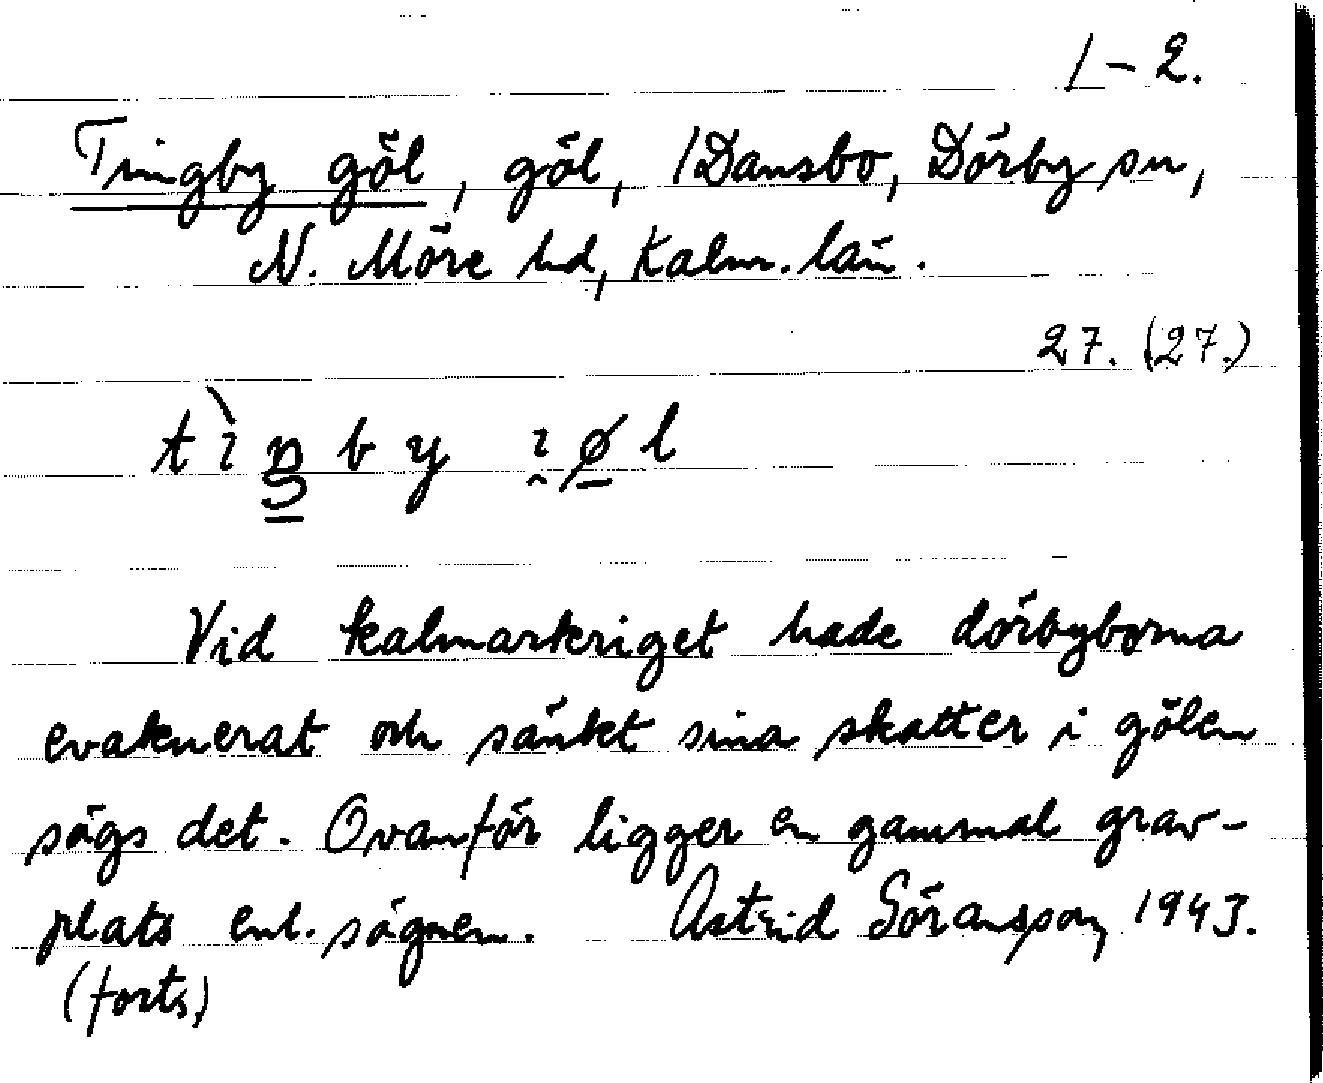 1-2.
Tingby göl, göl, 1 Dansbo, Dörby sn,
N. Möre hd, Kalm. län.
27. (27.)
tìŋby ı̯øl
Vid kalmarkriget hade dörbyborna
evakuerat och sänkt sina skatter i gölen
sägs det. Ovanför ligger en gammal grav-
plats enl. sägnen. Astrid Göransson, 1943.
(forts)